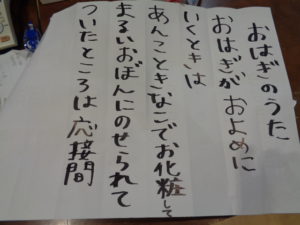 おはぎのうた
おはぎが およめに
いくときは
あんこときなこでお化粧して
まるいおぼんにのせられて
ついたところは応接間